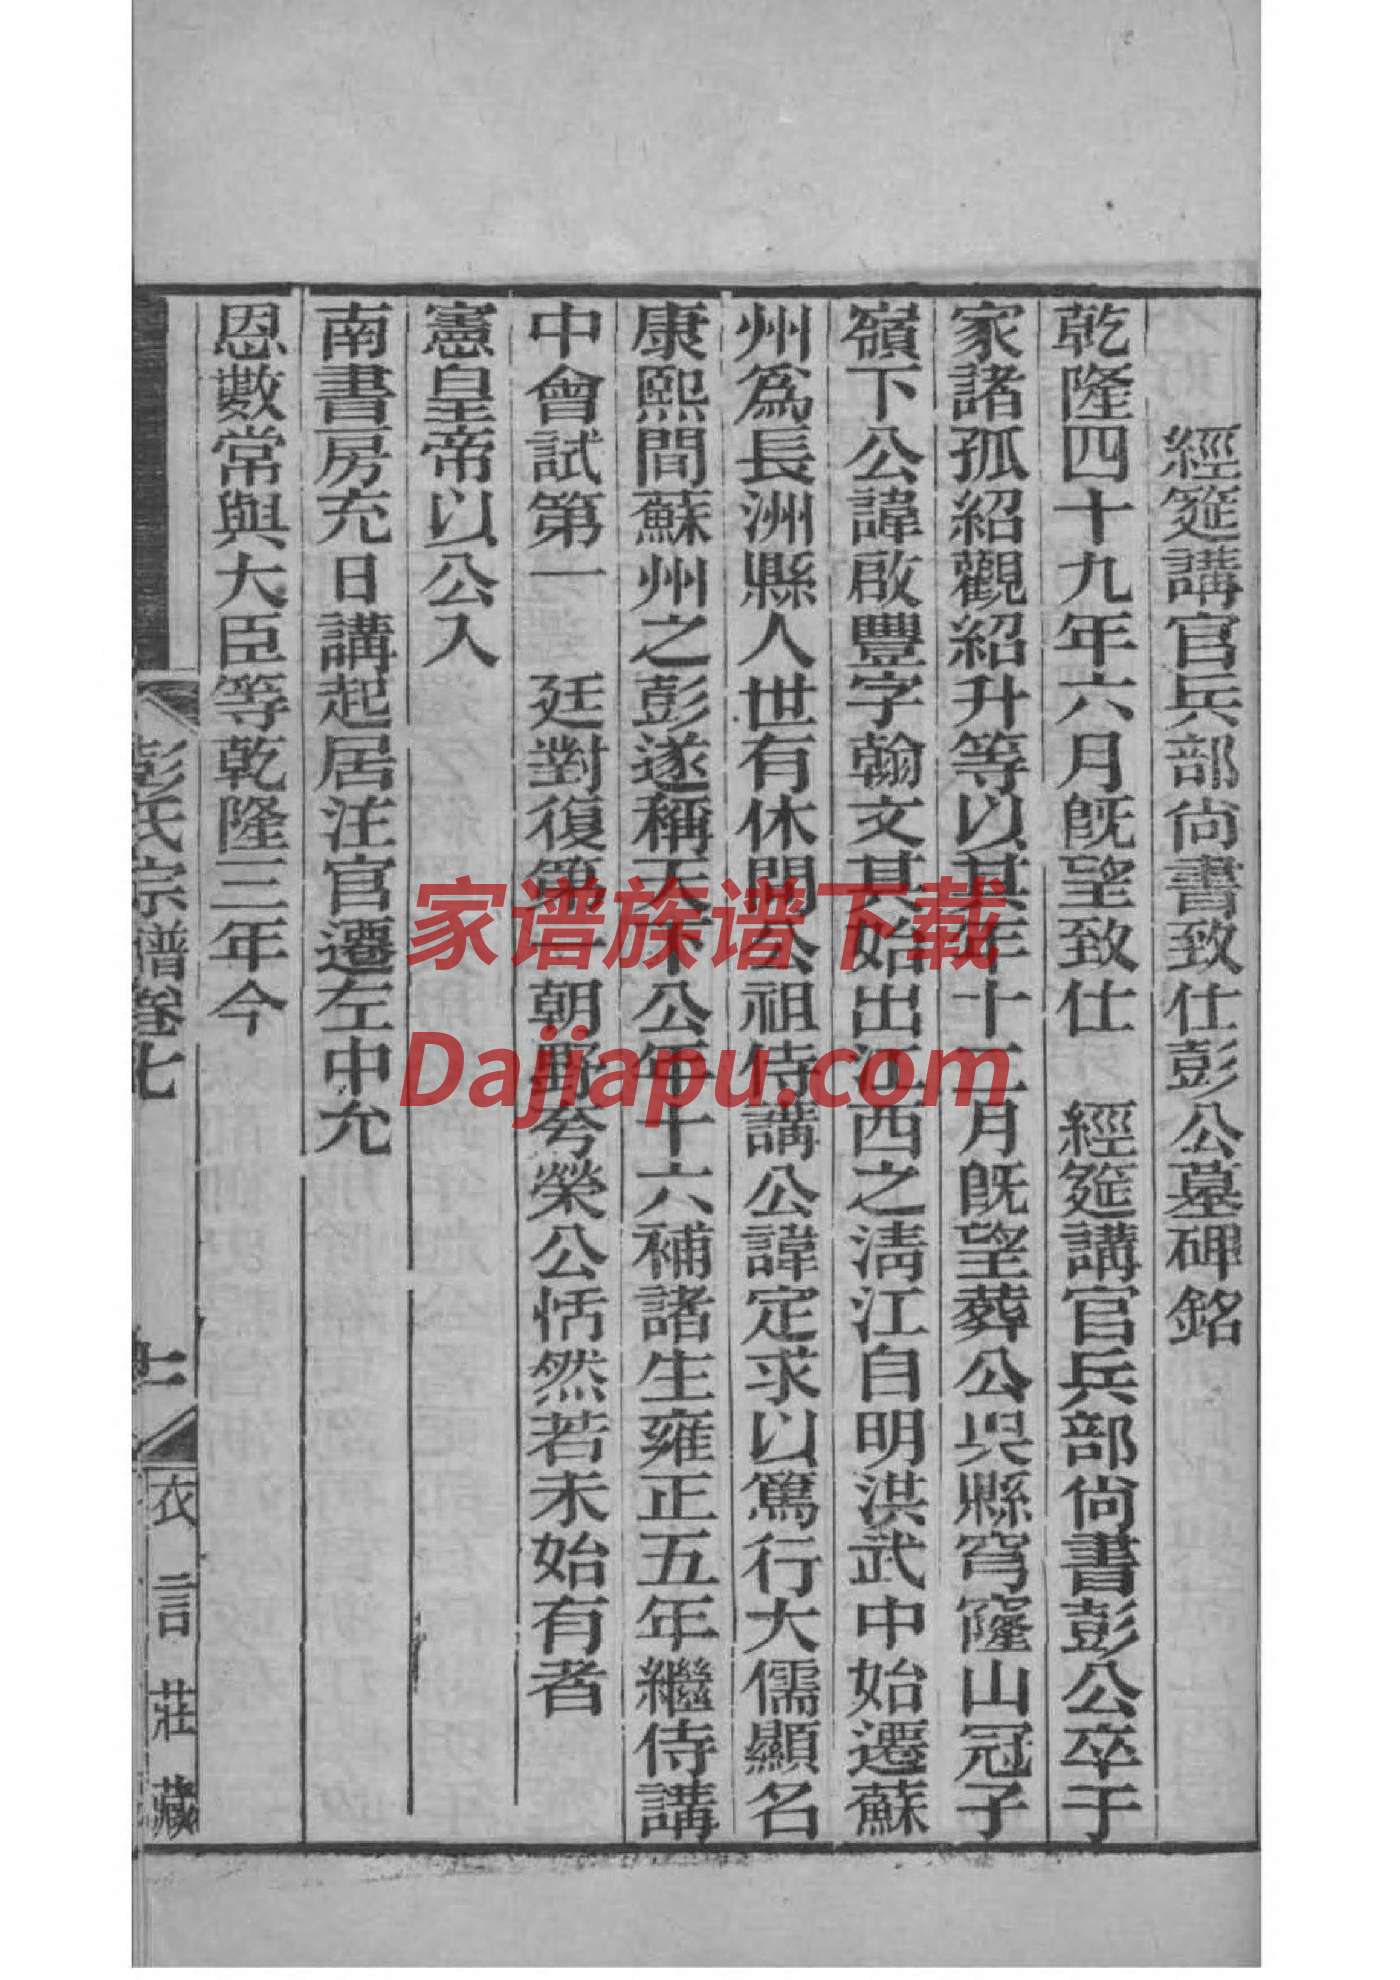 經筵講官兵部尚書致仕彭公墓碑銘
乾隆四十九年六月旣望致仕 經筵講官兵部尚書彭公卒于
家諸孤紹觀紹升等以其年十二月旣望葬公吳縣穹窿山冠子
嶺下公諱啟豐字翰文其始出江西之淸江自明洪武中始遷蘇
州爲長洲縣人世有休聞公祖侍講公諱定求以篤行大儒顯名
康熙間蘇州之彭遂稱天下公年十六補諸生雍正五年繼侍講
中會試第一 廷對復第一朝野夸榮公恬然若未始有者
憲皇帝以公入
南書房充日講起居注官遷左中允
恩數常與大臣等乾隆三年今
彭氏宗譜卷七
衣言莊藏
家谱族谱下载
Dajiapu.com